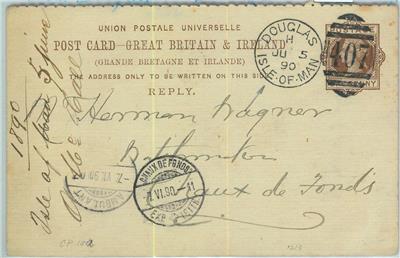 UNION POSTALE UNIVERSELLE
POST CARD—GREAT BRITAIN & IRELAND
(GRANDE BRETAGNE ET IRLANDE)
THE ADDRESS ONLY TO BE WRITTEN ON THIS SIDE
REPLY.
DOUGLAS
H
JU 5
90
ISLE-OF-MAN
407
Herman Wagner
Chaux de Fonds
1890
Isle of Man 5 June
AMBULANT
CHAUX DE FONDS
7.VI.90.-11
EXP. LETTR.